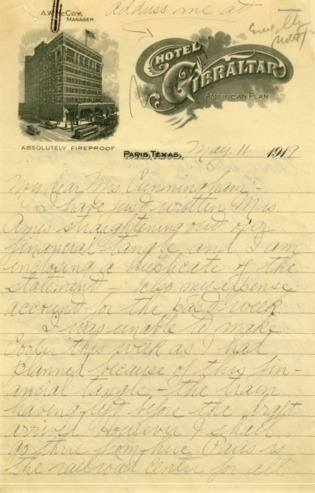 Address me at
A.W. McCoy,
Manager.
HOTEL
GIBRALTAR
American Plan
Absolutely Fireproof
Paris, Texas, May 11 1919
My dear Mrs. Cunningham:-
I have just written Mrs
Ames straightening out our
financial tangle and I am
inclosing a duplicate of the
statement - also my expense
account for the past week
I was unable to make
Cooper this week as I had
planned because of this fin-
ancial tangle - the train
having left before the draft
arrived. However I shall
go there from here. Paris is
the railroad center for all